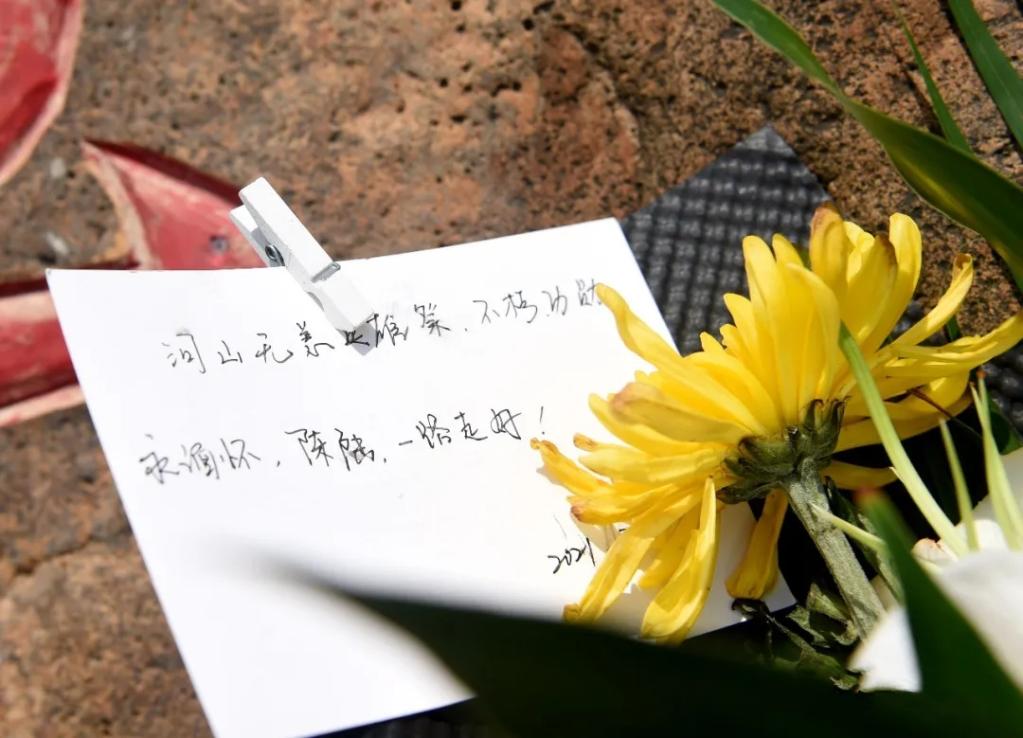 河山无恙英雄祭，不朽功勋
永缅怀，陈陆，一路走好！
2021